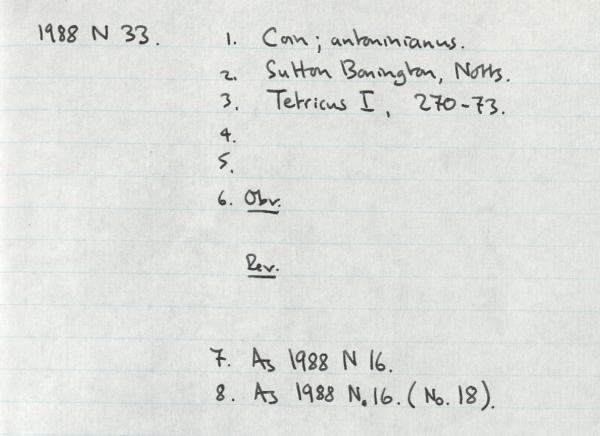 1988 N 33. 1. Coin; antoninianus.
2. Sutton Bonington, Notts.
3. Tetricus I, 270-73.
4.
5.
6. Obv.
Rev.
7. As 1988 N 16.
8. As 1988 N.16. (No. 18).